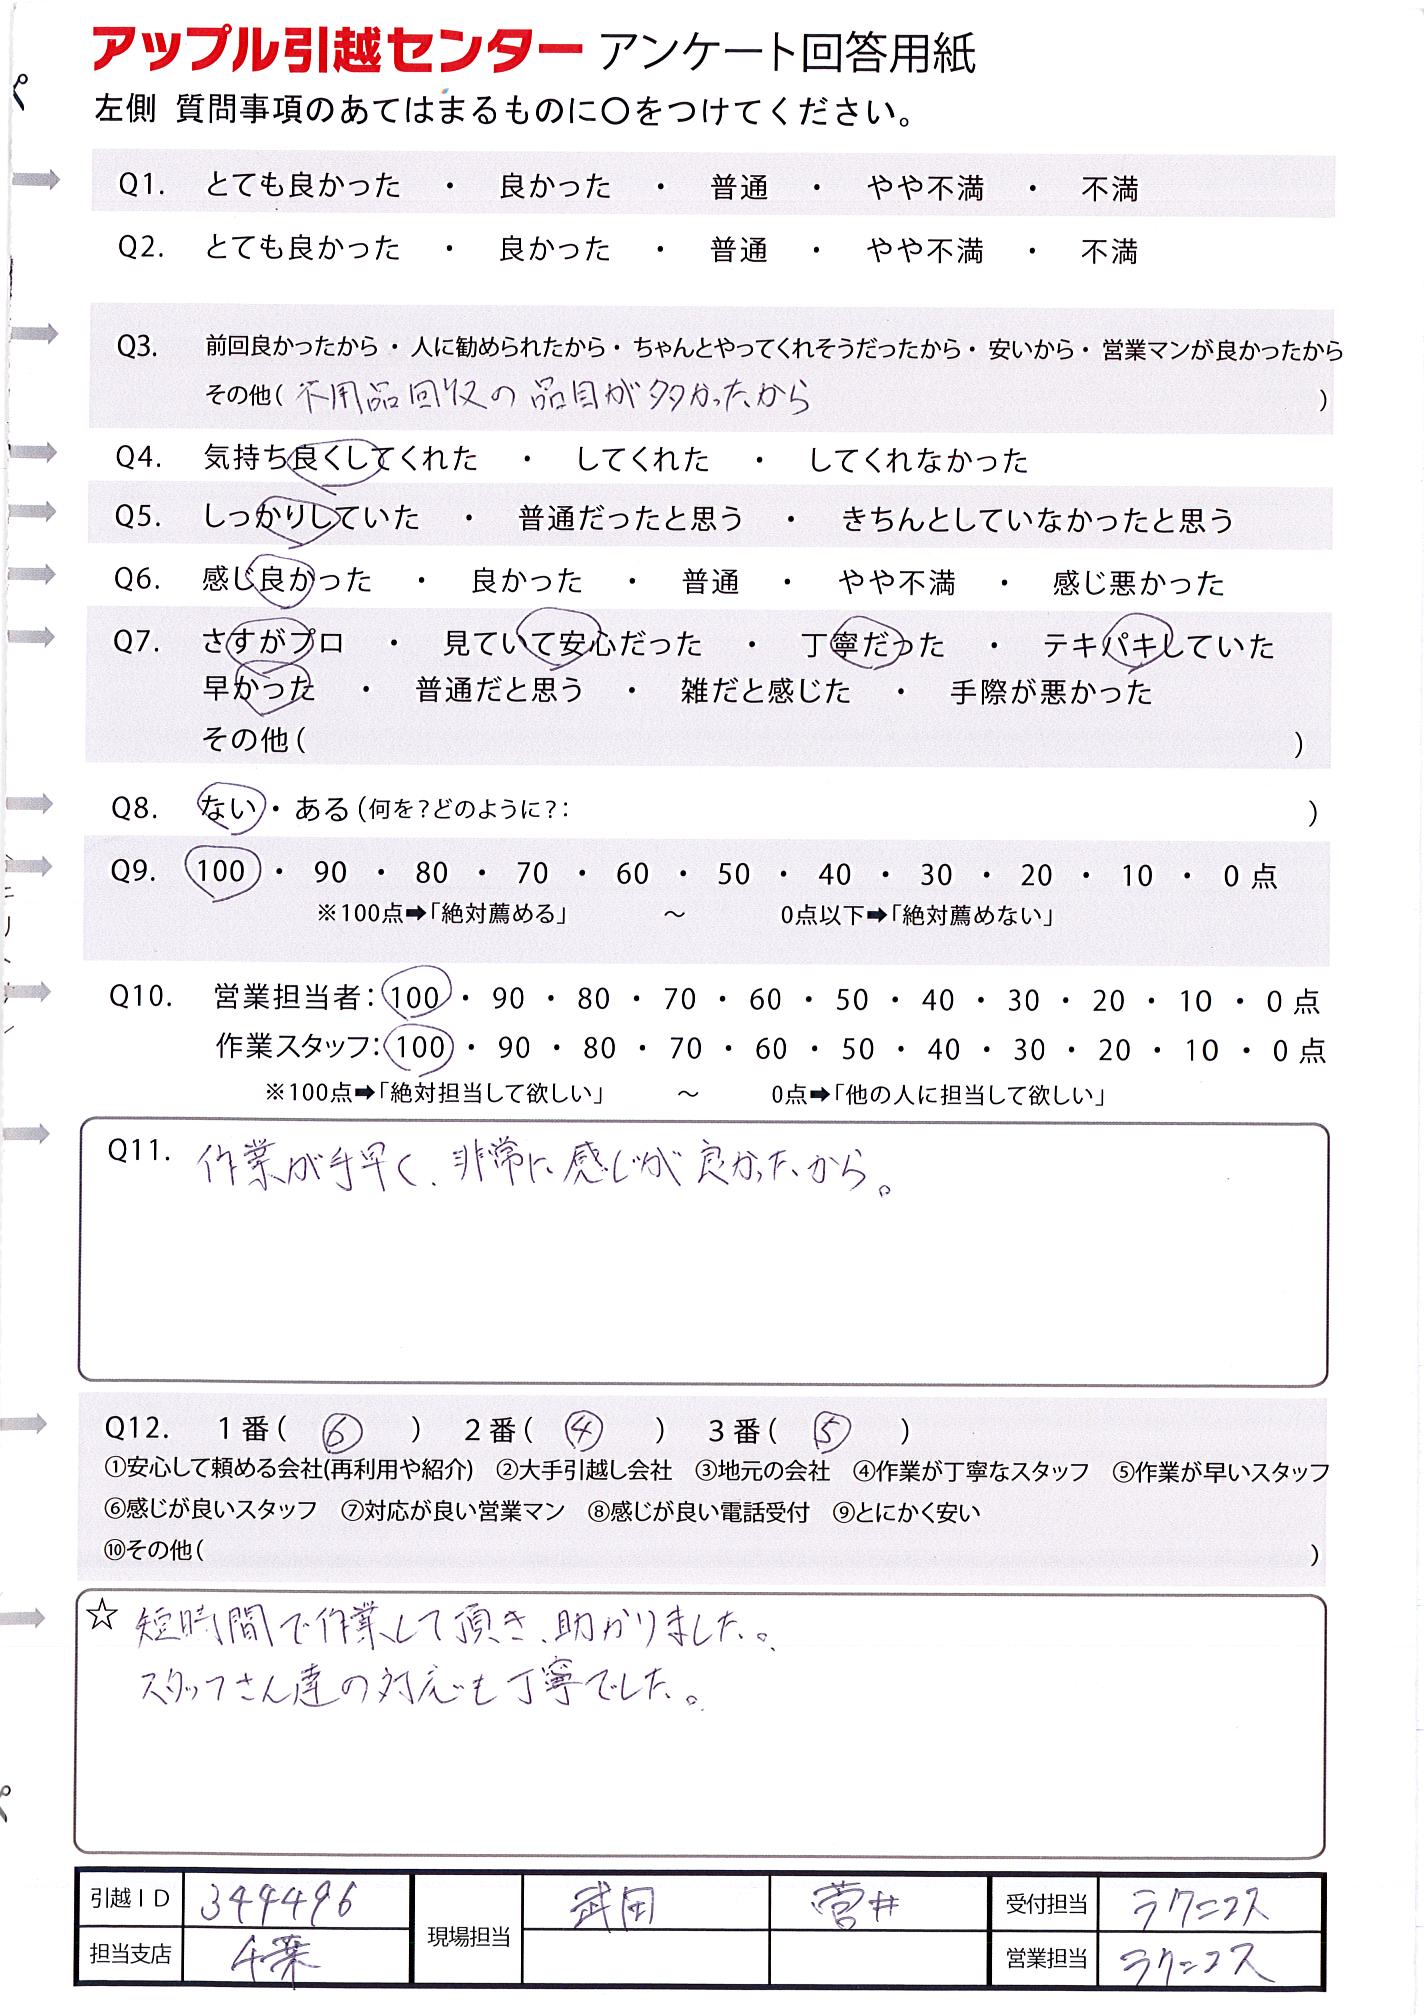 アップル引越センター アンケート回答用紙
左側 質問事項のあてはまるものに〇をつけてください。
Q1. とても良かった ・ 良かった ・ 普通 ・ やや不満 ・ 不満
Q2. とても良かった ・ 良かった ・ 普通 ・ やや不満 ・ 不満
Q3. 前回良かったから・人に勧められたから・ちゃんとやってくれそうだったから・安いから・営業マンが良かったから
その他( 不用品回収の品目が多かったから )
Q4. 気持ち良くしてくれた ・ してくれた ・ してくれなかった
Q5. しっかりしていた ・ 普通だったと思う ・ きちんとしていなかったと思う
Q6. 感じ良かった ・ 良かった ・ 普通 ・ やや不満 ・ 感じ悪かった
Q7. さすがプロ ・ 見ていて安心だった ・ 丁寧だった ・ テキパキしていた
早かった ・ 普通だと思う ・ 雑だと感じた ・ 手際が悪かった
その他( )
Q8. ない・ある(何を?どのように?: )
Q9. 100 ・ 90 ・ 80 ・ 70 ・ 60 ・ 50 ・ 40 ・ 30 ・ 20 ・ 10 ・ 0点
※100点➡「絶対薦める」 〜 0点以下➡「絶対薦めない」
Q10. 営業担当者:100・90・80・70・60・50・40・30・20・10・0点
作業スタッフ:100・90・80・70・60・50・40・30・20・10・0点
※100点➡「絶対担当して欲しい」 〜 0点➡「他の人に担当して欲しい」
Q11. 作業が手早く、非常に感じが良かったから。
Q12. 1番( ⑥ ) 2番( ④ ) 3番( ⑤ )
①安心して頼める会社(再利用や紹介) ②大手引越し会社 ③地元の会社 ④作業が丁寧なスタッフ ⑤作業が早いスタッフ
⑥感じが良いスタッフ ⑦対応が良い営業マン ⑧感じが良い電話受付 ⑨とにかく安い
⑩その他( )
☆ 短時間で作業して頂き、助かりました。
スタッフさん達の対応も丁寧でした。
引越ID 349496 現場担当 武田 菅井 受付担当 ラクニコス
担当支店 千葉 営業担当 ラクニコス